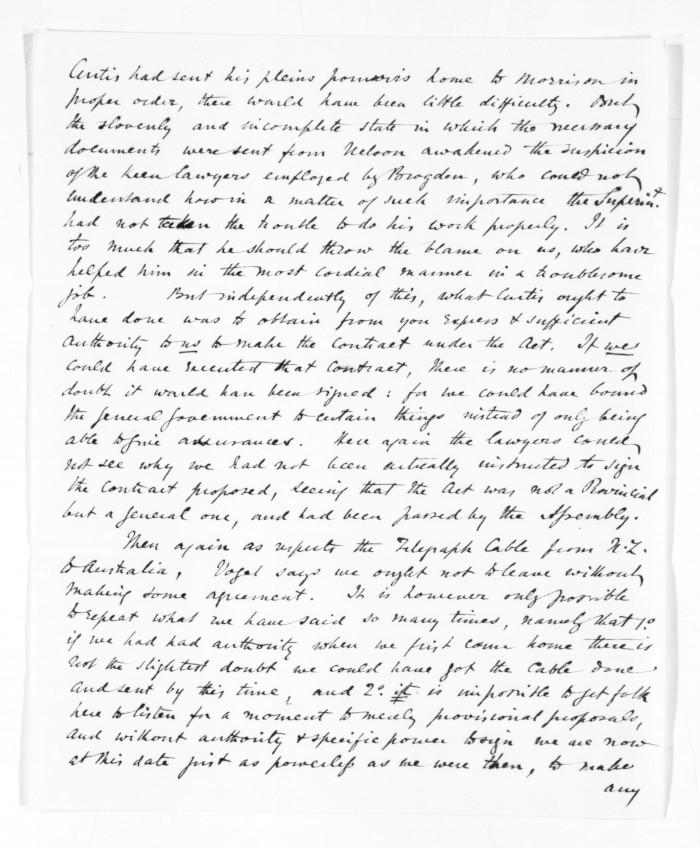 Curtis had sent his pleins pouvoirs home to Morrison in
proper order, there would have been little difficulty. But
the slovenly and incomplete state in which the necessary
documents were sent from Nelson awakened the suspicion
of the keen lawyers employed by Brogden, who could not
understand how in a matter of such importance the Superint.
had not taken the trouble to do his work properly. It is
too much that he should throw the blame on us, who have
helped him in the most cordial manner in a troublesome
job. But independently of this, what Curtis ought to
have done was to obtain from you express & sufficient
authority to us to make the contract under the Act. If we
could have executed that contract, there is no manner of
doubt it would have been signed: for we could have bound
the General Government to certain things instead of only being
able to give assurances. Here again the lawyers could
not see why we had not been actually instructed to sign
the contract proposed, seeing that the Act was not a Provincial
but a general one, and had been passed by the Assembly.
Then again as respects the Telegraph Cable from N.Z.
to Australia, Vogel says we ought not to leave without
making some agreement. It is however only possible
to repeat what we have said so many times, namely that 1º
if we had had authority when we first came home there is
not the slightest doubt we could have got the Cable done
and sent by this time, and 2º it is impossible to get folk
here to listen for a moment to merely provisional proposals,
and without authority & specific power to sign we are now
at this date just as powerless as we were then, to make
any